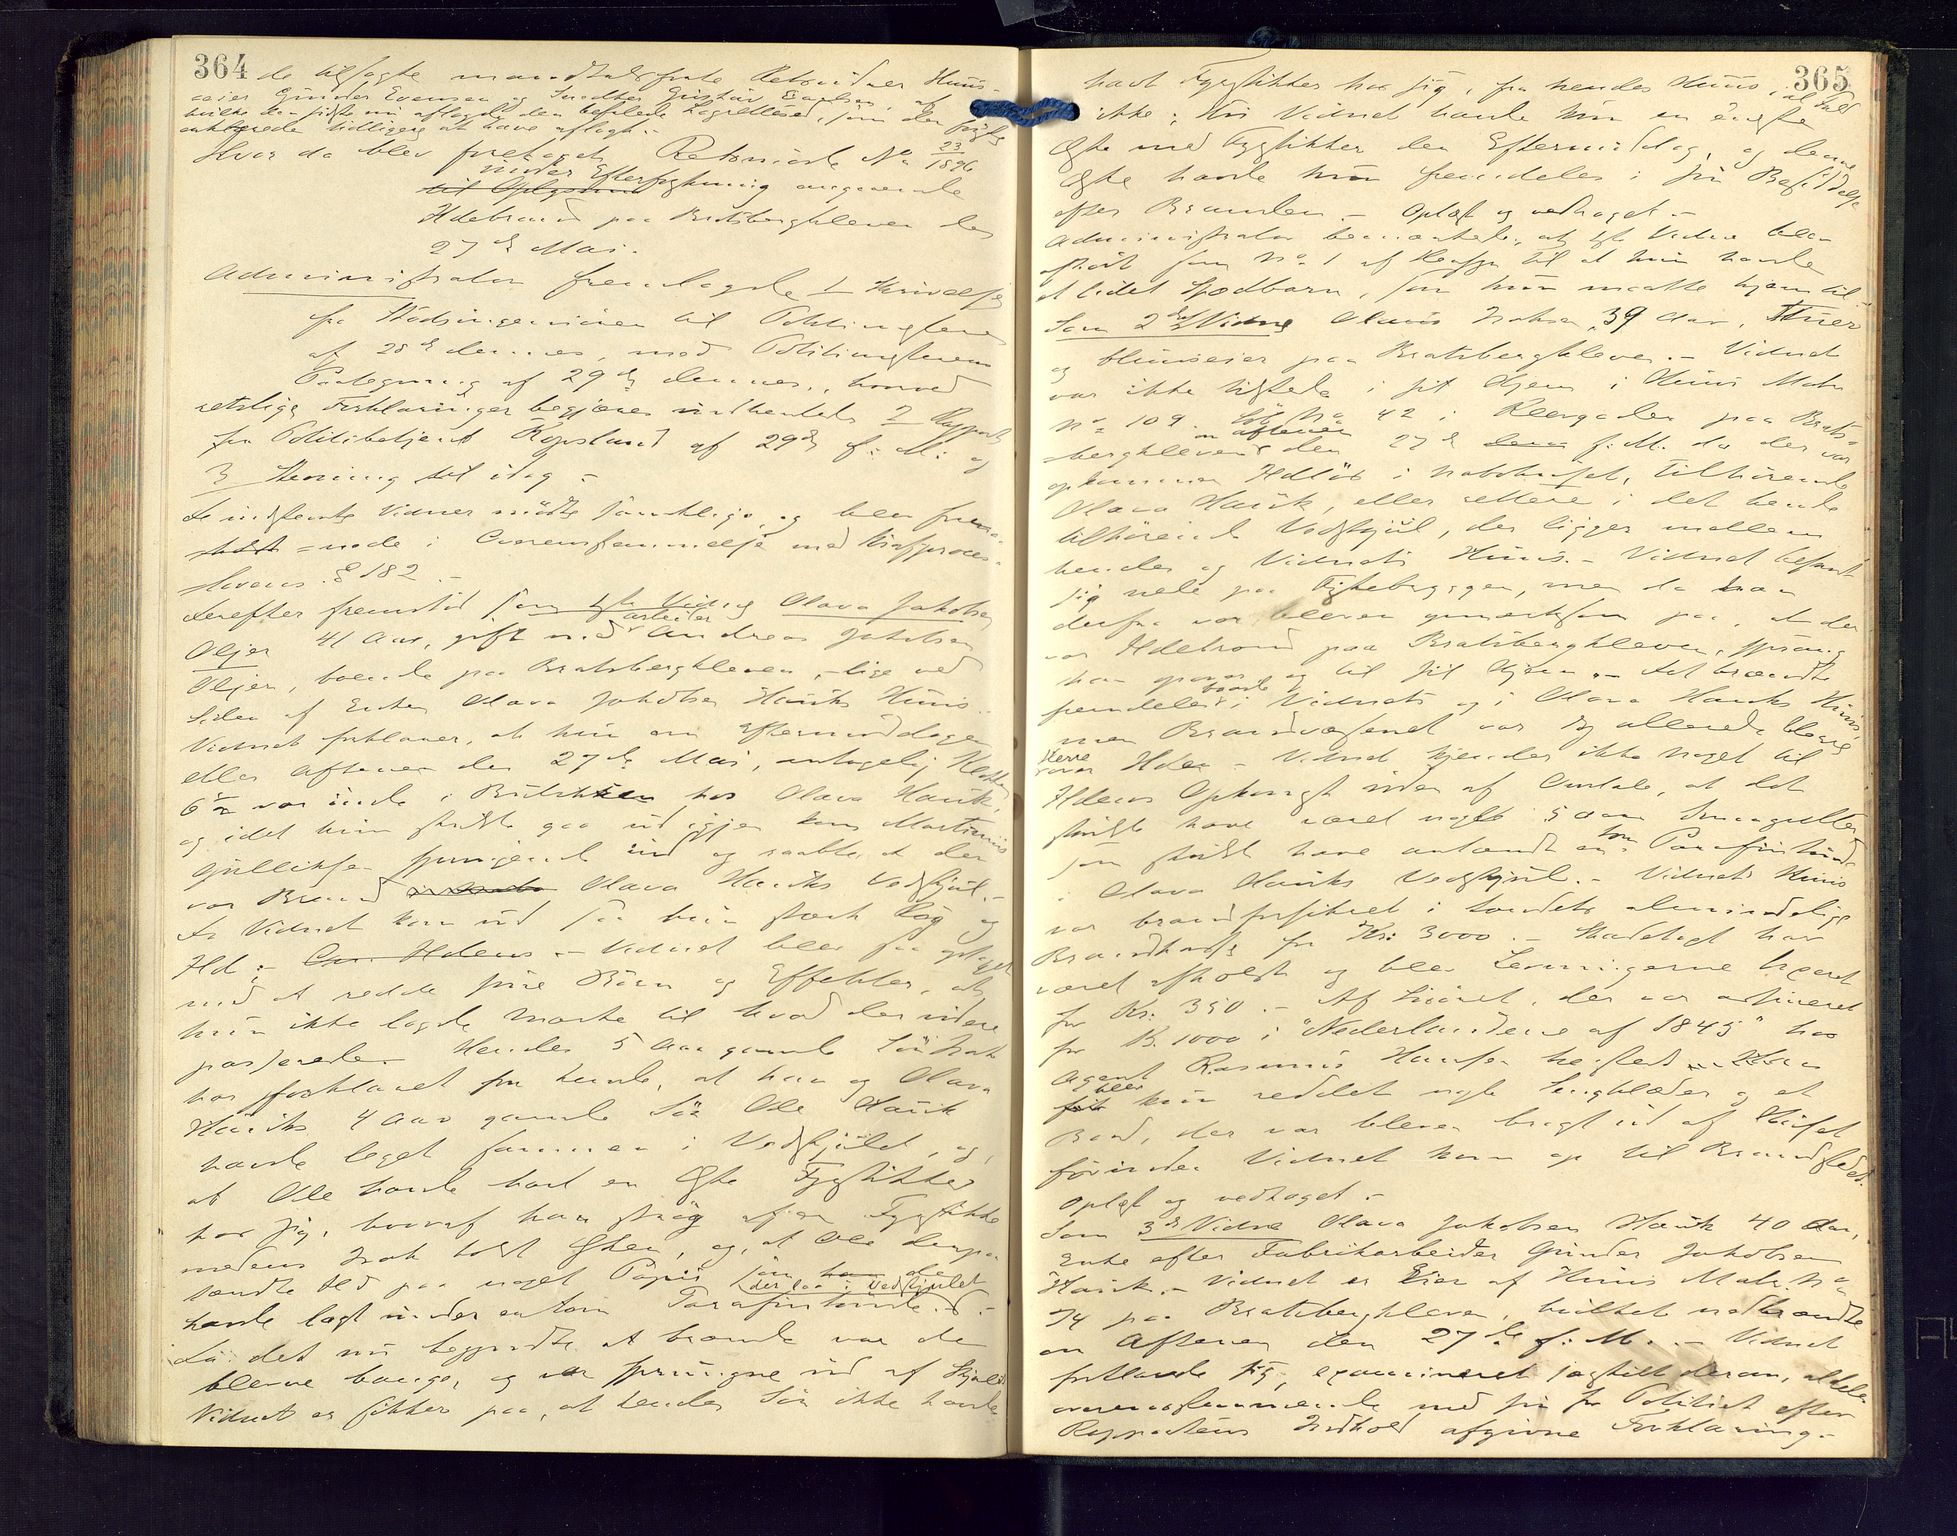 364
de tilsagte mandtalsførte Retsvidner Huus-
eier Gunder Evensen og Snedker Gustav Paulsen, af
hvilke den sidste nu aflagde den befalede Lagretteed, som den første
anførte tidligere at have aflagt.
Hvor da blev foretaget Retsmøde No 23/1896
under Efterforskning angaaende
Ildebrand paa Bratsbergkleven den
27de Mai.
Administrator fremlagde 1 Skrivelse
fra Stadsingeniøren til Politimesteren
af 28de dennes, med Politimesterens
Paategning af 29de dennes, hvorved
retslige Forklaringer begjæres indhentede 2 Rapport
fra Politibetjent Kopsland af 29de f: M: og
3 Stevning til idag -
De indstevnte Vidner mødte samtlige, og blev frem-
 = nede i Overensstemmelse med Strafproces-
lovens § 182. -
Derefter fremstod som 1ste Vidne Olava Jakobsen
Oljer 41 Aar, gift med arbeider Andreas Jakobsen
Oljer, boende paa Bratsbergkleven, - lige ved
Siden af Enken Olava Jakobsen Hauks Huus.
Vidnet forklarer, at hun om Eftermiddagen
eller Aftenen den 27de Mai, antagelig Klokken
6 1/2 var inde i hos Olava Hauk,
og idet hun skulde gaa ud igjen kom Martinius
Gulliksen springende ind og raabte, at der
var Brand Olava Hauks Vedskjul. -
Da Vidnet kom ud saa hun stærk Røg og
Ild; - Vidnet blev saa optaget
med at redde sine Børn og Effekter, at
hun ikke lagde Mærke til hvad der videre
passerede. Hendes 5 Aar gamle Søn Isak
har forklaret for hende, at han og Olava
Hauks 4 Aar gamle Søn Ole Hauk
havde leget sammen i Vedskjulet, og,
at Ole havde havt en Æske Fyrstikker
hos sig, hvoraf han strøg af en Fyrstikke
medens Isak holdt Æsken, og, at Ole derpaa
tændte Ild paa noget Papir som de
havde lagt under en tom Parafintønde der laa i Vedskjulet. -
Da det nu begyndte at brænde var de
blevne bange, og var sprungne ud af Skjulet
Vidnet er sikker paa, at hendes Søn ikke havde
365
havt Fyrstikker hos sig, fra hendes Huus, i al Fald
ikke; thi Vidnet havde kun en eneste
Æske med Fyrstikker den Eftermiddag, og denne
Æske havde hun fremdeles i sin Besiddelse
efter Branden. - Oplæst og vedtaget. -
Administrator bemærkede, at 1ste Vidne blev
afhørt som No 1 af Hensyn til at hun havde
et lidet Spædbarn, som hun maatte hjem til. -
Som 2det Vidne Olaus Isaksen, 39 Aar, Stuer
og Huuseier paa Bratsbergkleven. - Vidnet
var ikke tilstede i sit Hjem i Huus Matr
No 109. Løb No 42 i Klevgaden paa Brats-
bergkleven om aftenen den 27de f: M. da der var
opkommen Ildløs i Nabohuset, tilhørende
Olava Hauk, eller rettere i det hende
tilhørende Vedskjul, der ligger mellem
hendes og Vidnets Huus. - Vidnet befandt
sig nede paa Fiskebryggen, men da han
derfra var bleven opmærksom paa, at der
var Ildebrand paa Bratsbergkleven, sprang
han op og til sit Hjem. - Det brændte
fremdeles baade i Vidnets og i Olava Hauks Huus,
men Brandvæsenet var dog allerede bleven
Herre over Ilden. - Vidnet kjender ikke noget til
Ildens Opkomst uden af Omtale, at det
skulde have været nogle 5 Aars Smaagutter
som skulde have antændt en tom Parafintønde
i Olava Hauks Vedskjul. - Vidnets Huus
var brandforsikret i Landets almindelige
Brandkasse for Kr: 3000. - Skadetaxt har
været afholdt og blev Levningerne taxeret
for Kr. 350. - Af Indboet, der var assureret
for Kr 1000 i "Nederlandene af 1845" hos
Agent Rasmus Hansen hersteds
blev kun reddet nogle Sengklæder og et
Bord, der var bleven bragt ud af Huset
førinden Vidnet kom op til Brandstedet.
Oplæst og vedtaget. -
Som 3de Vidne Olava Jakobsen Hauk 40 Aar,
Enke efter Fabrikarbeider Gunder Jakobsen
Hauk. - Vidnet er Eier af Huus Matr. No
74 paa Bratsbergkleven, hvilket nedbrændte
om Aftenen den 27de f: M. - Vidnet
forklarede sig, examineret sagtilt derom, aldeles
overensstemmende med sin for Politiet efter
Rapportens Indhold afgivne Forklaring. -